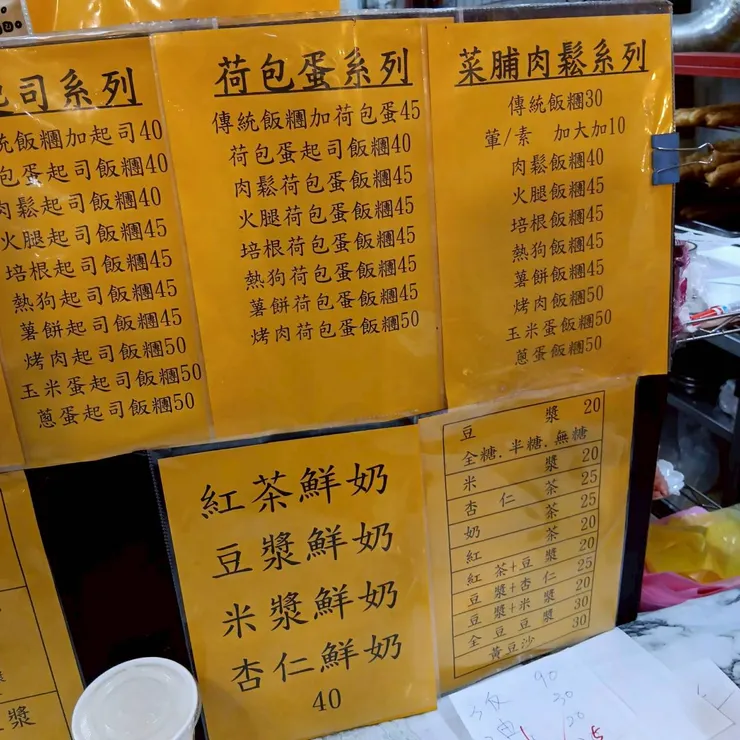 司系列
統飯糰加起司40
包蛋起司飯糰40
肉鬆起司飯糰40
火腿起司飯糰45
培根起司飯糰45
熱狗起司飯糰45
薯餅起司飯糰45
烤肉起司飯糰50
玉米蛋起司飯糰50
蔥蛋起司飯糰50
荷包蛋系列
傳統飯糰加荷包蛋45
荷包蛋起司飯糰40
肉鬆荷包蛋飯糰45
火腿荷包蛋飯糰45
培根荷包蛋飯糰45
熱狗荷包蛋飯糰45
薯餅荷包蛋飯糰45
烤肉荷包蛋飯糰50
菜脯肉鬆系列
傳統飯糰30
葷/素 加大加10
肉鬆飯糰40
火腿飯糰45
培根飯糰45
熱狗飯糰45
薯餅飯糰45
烤肉飯糰50
玉米蛋飯糰50
蔥蛋飯糰50
紅茶鮮奶
豆漿鮮奶
米漿鮮奶
杏仁鮮奶
40
豆漿 20
全糖.半糖.無糖
米漿 20
杏仁茶 25
奶茶 25
紅茶 20
紅茶+豆漿 20
豆漿+杏仁 25
豆漿+米漿 20
全豆豆漿 30
黃豆沙 30
漿
90
30
20